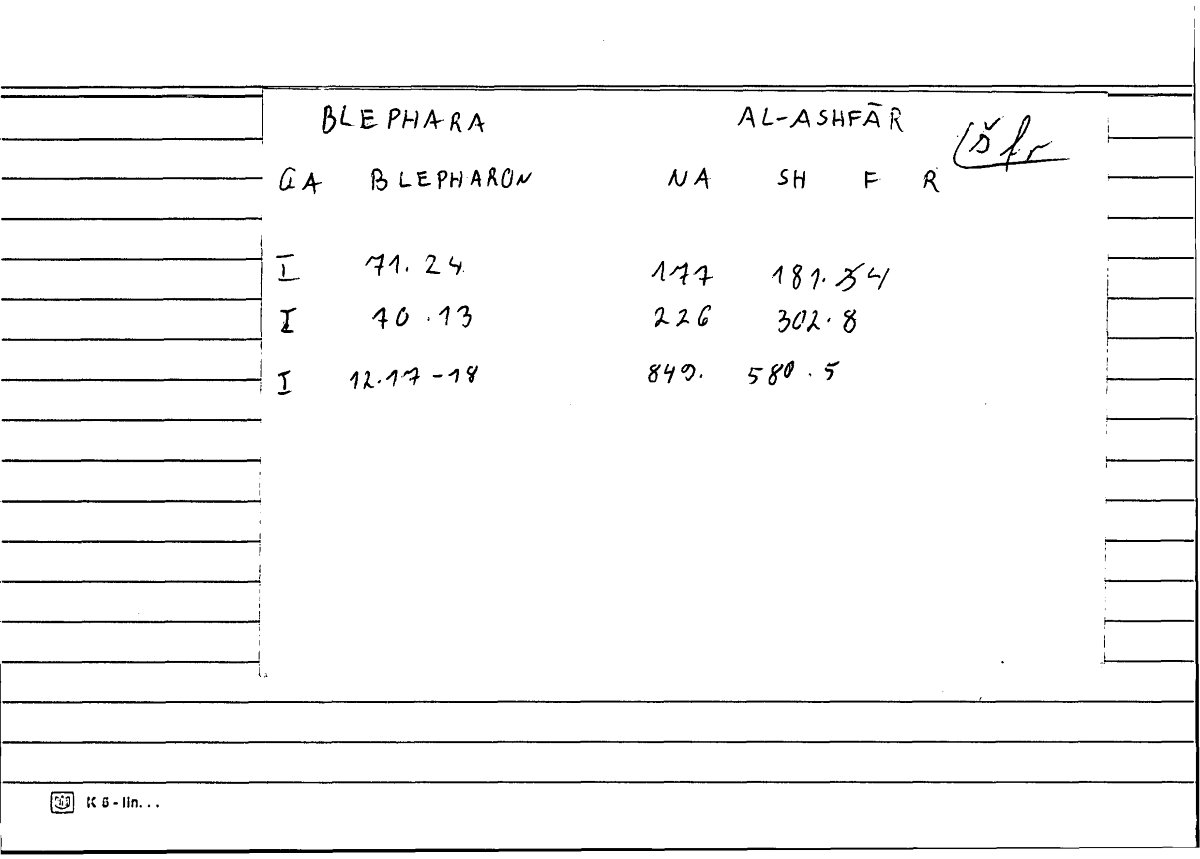 BLEPHARA AL-ASHFĀR šfr
GA BLEPHARON NA SH F R
I 71. 24 177 181. 4
I 70. 13 226 302. 8
I 12.17-18 849. 580. 5
K 5-lin...